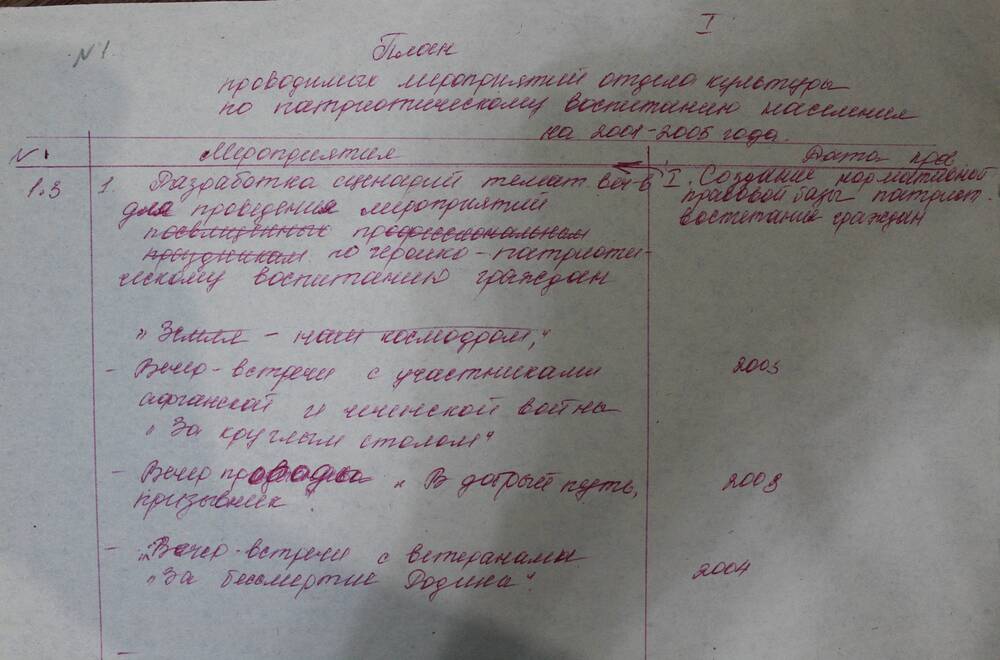 I
N 1.
План
проводимых мероприятий отдела культуры
по патриотическому воспитанию населения
на 2001-2005 года.
N Мероприятия Дата пров
1.3 1. Разработка сценарий темат. веч-в
для проведения мероприятий
посвященных профессиональным
праздникам по героико-патриоти-
ческому воспитанию граждан
I. Создание нормативной
правовой базы патриот.
воспитание граждан
"Земля - наш космодром,"
- Вечер-встречи с участниками 2003
афганской и чеченской войны
"За круглым столом"
- Вечер проводы "В добрый путь, 2003
призывник"
- Вечер-встречи с ветеранами
"За бессмертие Родина". 2004